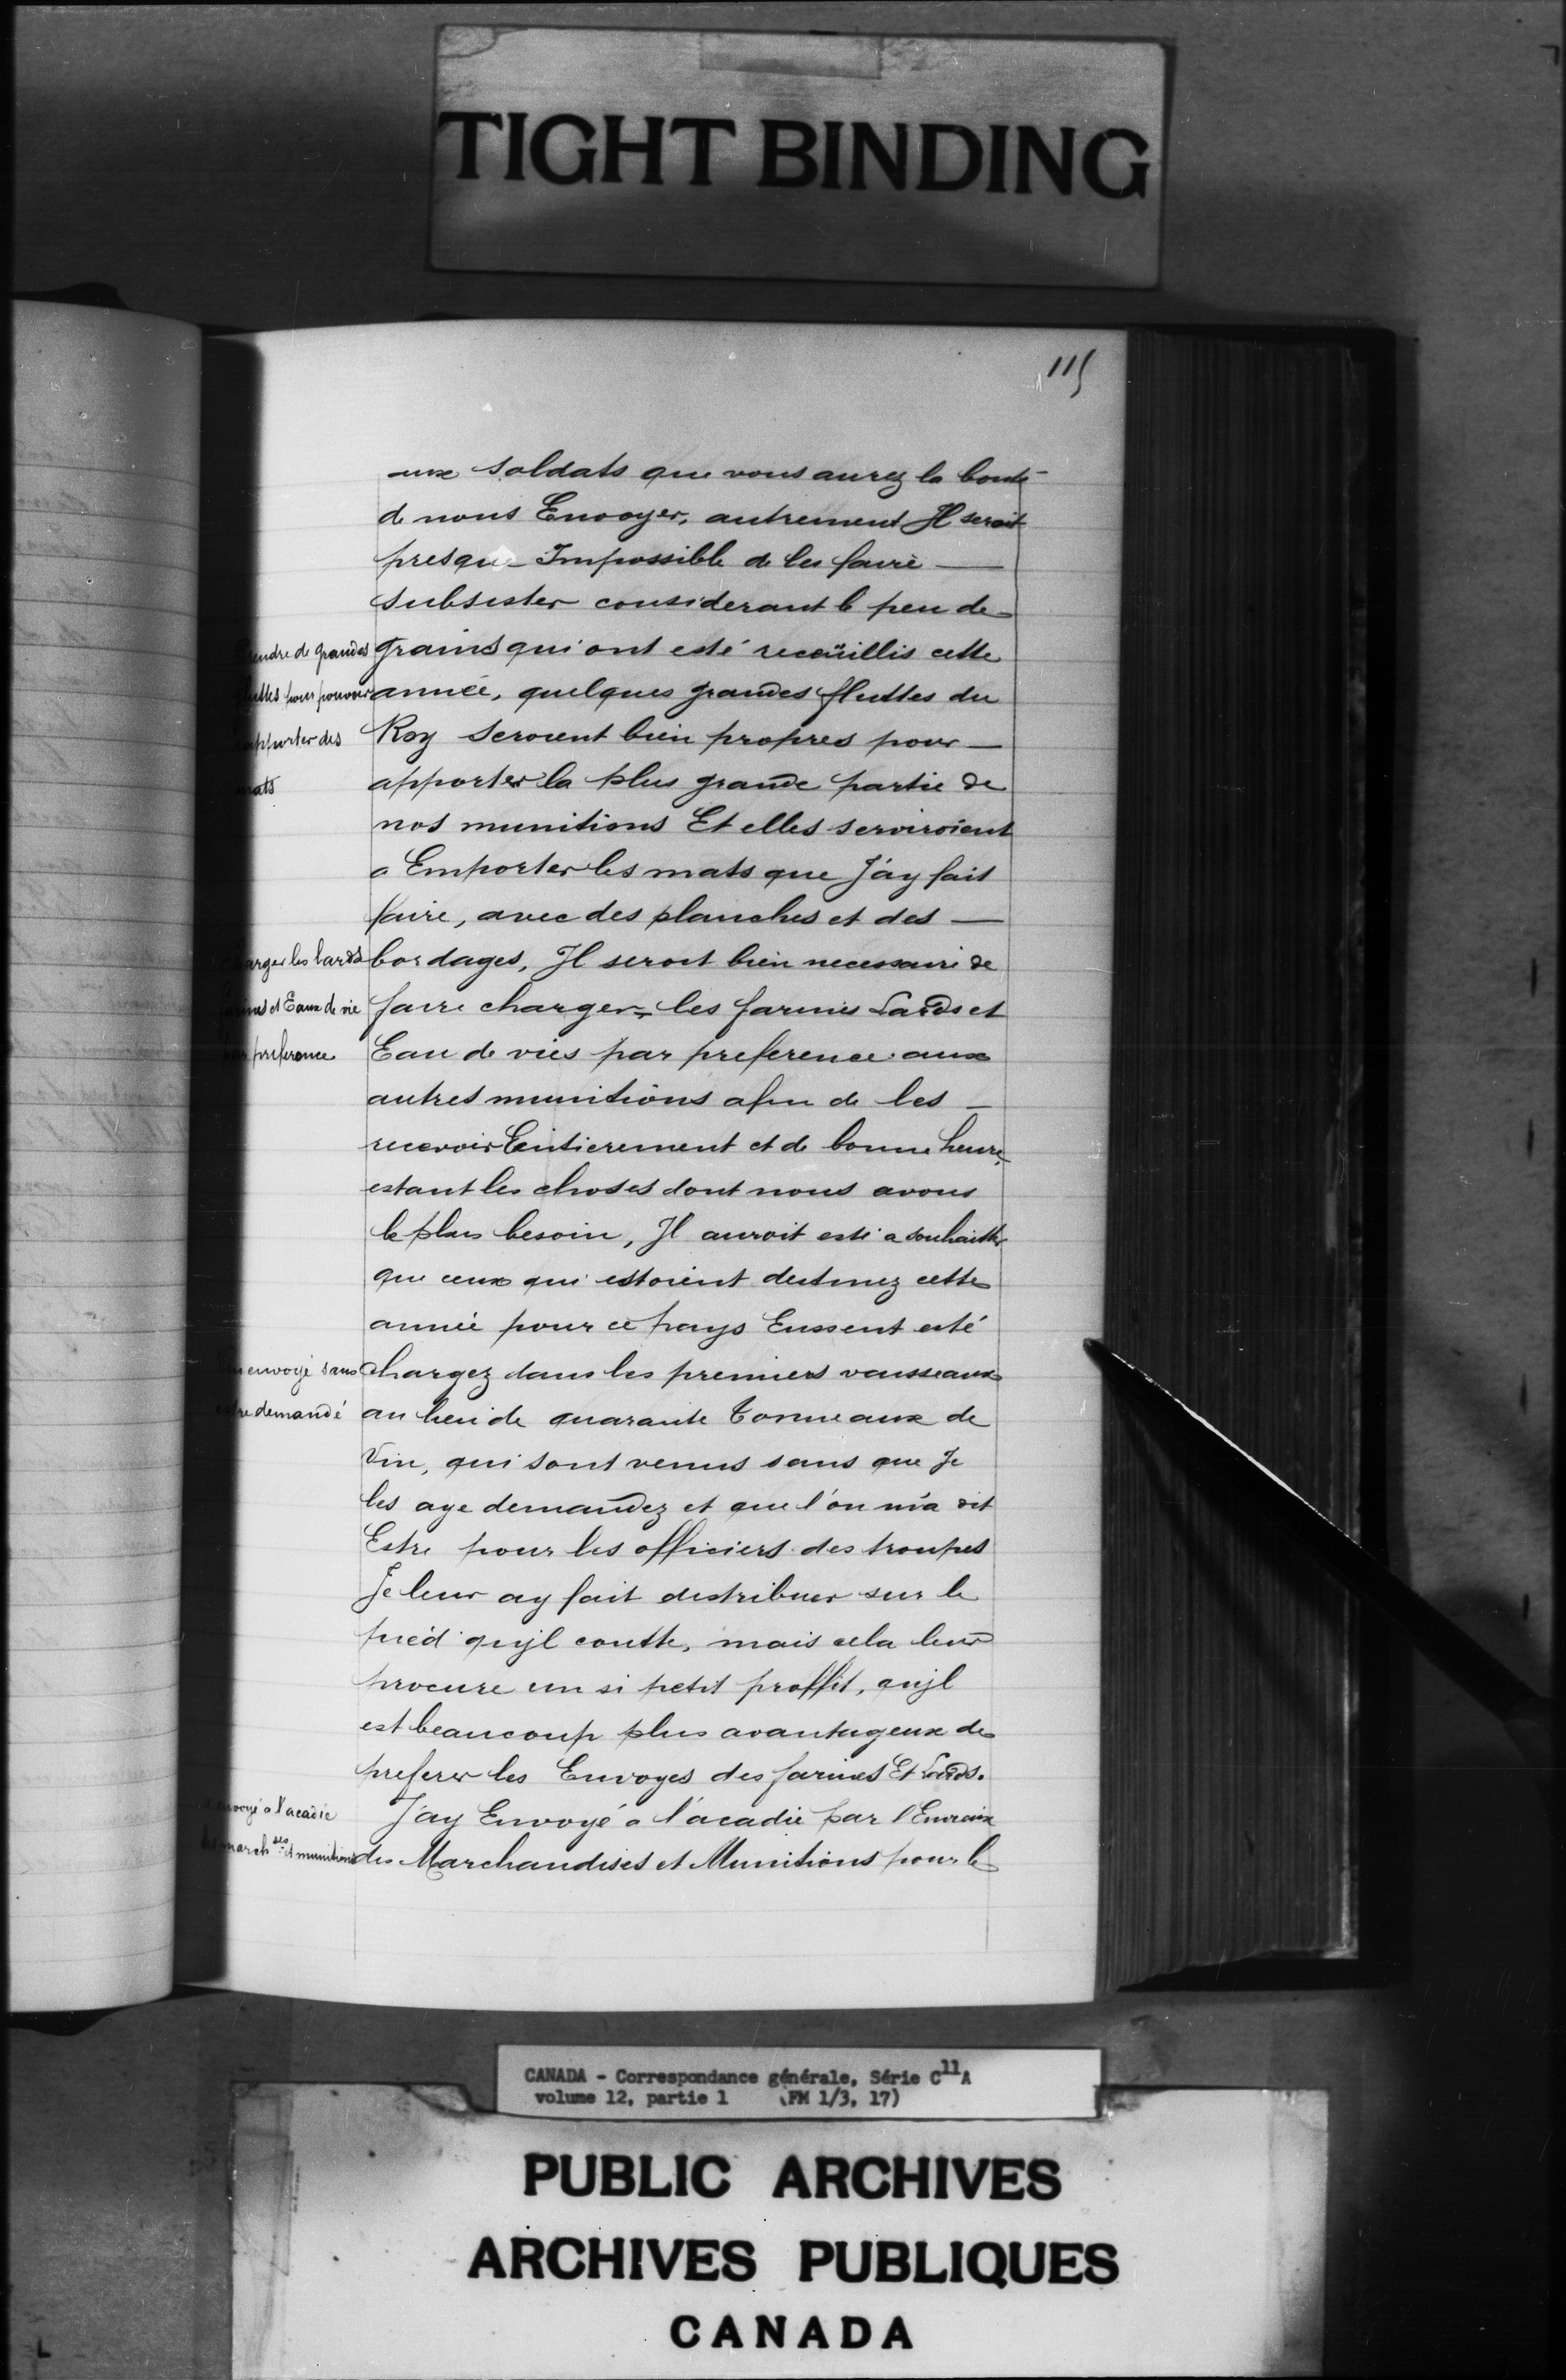 TIGHT BINDING
115
aux soldats que vous aurez la bonté
de nous Envoyer, autrement Il seroit
presque Impossible de les faire —
subsister considerant le peu de
grains qui ont esté recüillis cette
année, quelques grandes fluttes du
Roy seroient bien propres pour —
apporter la plus grande partie de
nos munitions Et elles serviroient
a Emporter les mats que J'ay fait
faire, avec des planches et des —
bordages, Il seroit bien necessaire de
faire charger les farines Lards et
Eau de vies par preference aux
autres munitions afin de les —
recevoir Entierement et de bonne heure,
estant les choses dont nous avons
le plus besoin, Il auroit esté a souhaitter
que ceux qui estoient destinez cette
année pour ce pays Eussent esté
chargez dans les premiers vaisseaux
au lieu de quarante Tonneaux de
Vin, qui sont venus sans que Je
les aye demandez et que l'on m'a dit
Estre pour les officiers des troupes
Je leur ay fait distribuer sur le
pied qu'jl coutte, mais cela leur
procure un si petit proffit, qujl
est beaucoup plus avantageux de
preferer les Envoyes des farines Et Lards.
J'ay Envoyé a l'acadie par
des Marchandises et Munitions pour le
endre de grandes
luttes pour pouvoir
apporter des
mats
arger les lards
rines et Eaux de vie
par preference
envoyé sans
estre demandé
envoyé a l'acadie
march ses et munitions
CANADA - Correspondance générale, Série C11A
volume 12, partie 1 (FM 1/3, 17)
PUBLIC ARCHIVES
ARCHIVES PUBLIQUES
CANADA